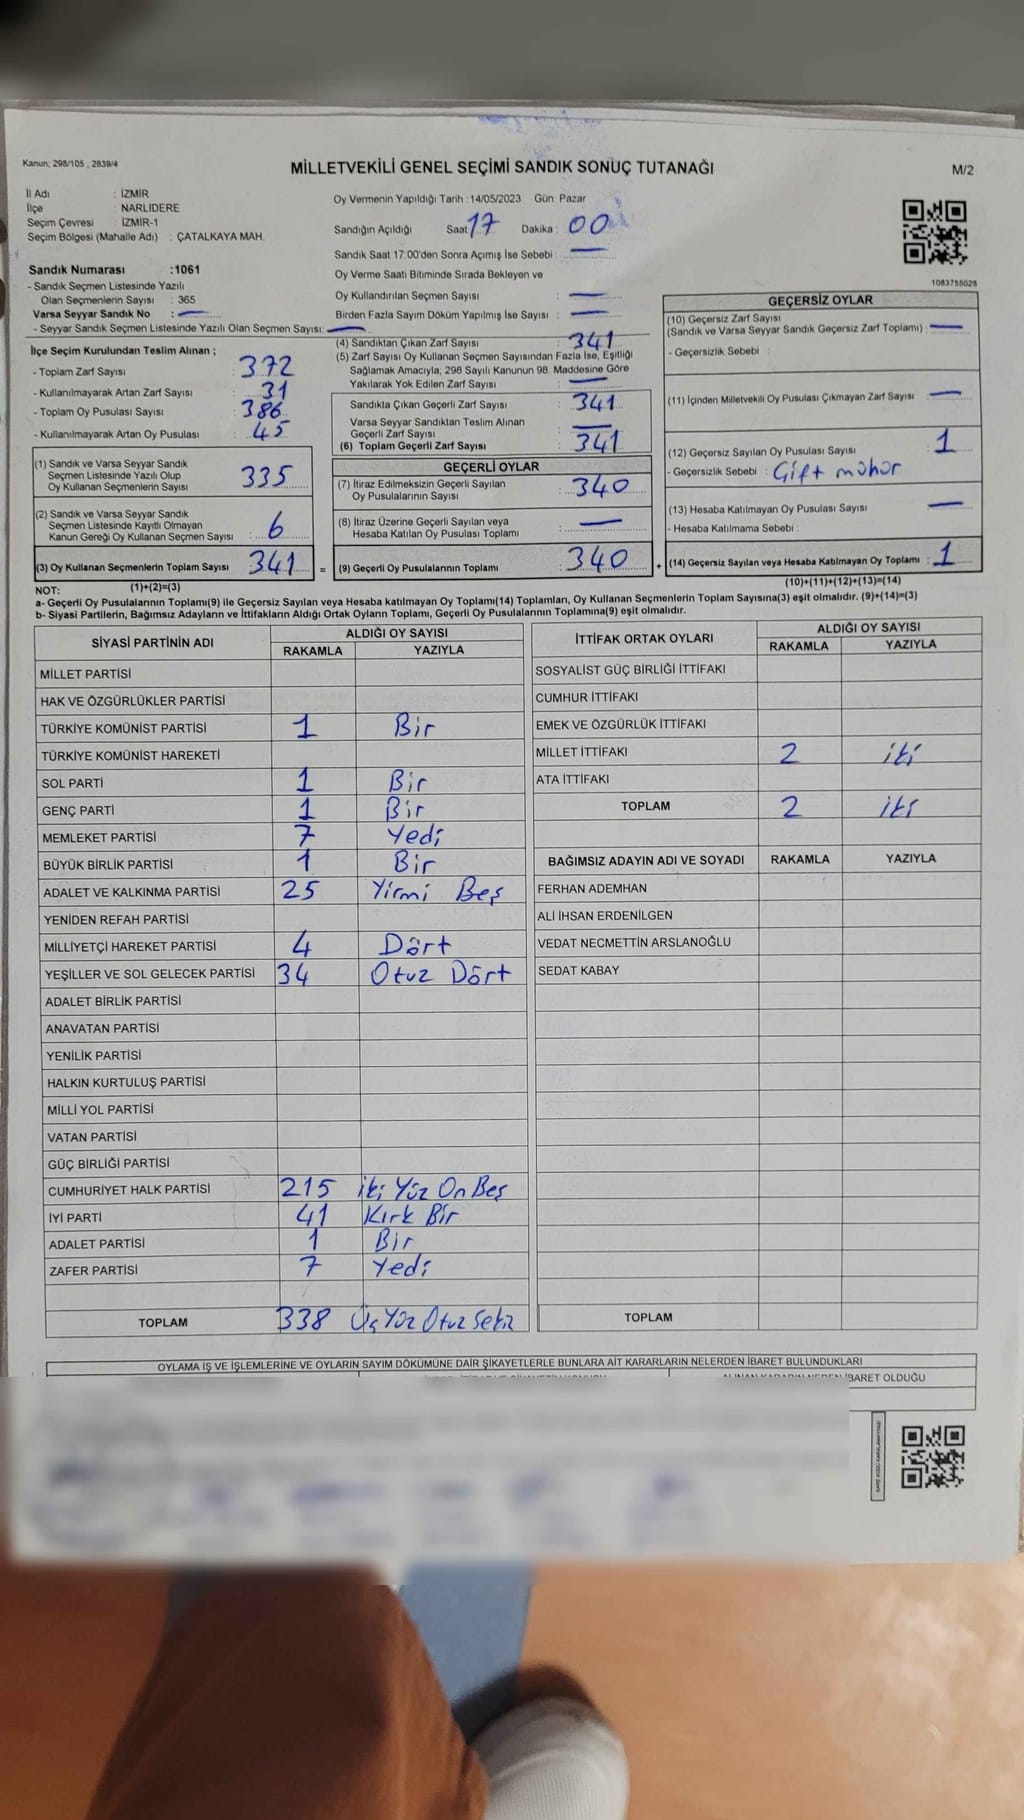 Kanun; 298/105 , 2839/4
MİLLETVEKİLİ GENEL SEÇİMİ SANDIK SONUÇ TUTANAĞI
M/2
İl Adı : İZMİR
İlçe : NARLIDERE
Seçim Çevresi : İZMİR-1
Seçim Bölgesi (Mahalle Adı) : ÇATALKAYA MAH.
Sandık Numarası :1061
- Sandık Seçmen Listesinde Yazılı
Olan Seçmenlerin Sayısı : 365
Varsa Seyyar Sandık No : —
- Seyyar Sandık Seçmen Listesinde Yazılı Olan Seçmen Sayısı: —
Oy Vermenin Yapıldığı Tarih : 14/05/2023 Gün: Pazar
Sandığın Açıldığı Saat 17 Dakika : 00
Sandık Saat 17:00'den Sonra Açımış İse Sebebi : —
Oy Verme Saati Bitiminde Sırada Bekleyen ve
Oy Kullandırılan Seçmen Sayısı : —
Birden Fazla Sayım Döküm Yapılmış İse Sayısı : —
1083755028
İlçe Seçim Kurulundan Teslim Alınan ;
- Toplam Zarf Sayısı : 372
- Kullanılmayarak Artan Zarf Sayısı : 31
- Toplam Oy Pusulası Sayısı : 386
- Kullanılmayarak Artan Oy Pusulası : 45
(1) Sandık ve Varsa Seyyar Sandık
Seçmen Listesinde Yazılı Olup
Oy Kullanan Seçmenlerin Sayısı : 335
(2) Sandık ve Varsa Seyyar Sandık
Seçmen Listesinde Kayıtlı Olmayan
Kanun Gereği Oy Kullanan Seçmen Sayısı : 6
(3) Oy Kullanan Seçmenlerin Toplam Sayısı : 341 =
(4) Sandıktan Çıkan Zarf Sayısı : 341
(5) Zarf Sayısı Oy Kullanan Seçmen Sayısından Fazla İse, Eşitliği
Sağlamak Amacıyla; 298 Sayılı Kanunun 98. Maddesine Göre
Yakılarak Yok Edilen Zarf Sayısı : —
Sandıkta Çıkan Geçerli Zarf Sayısı : 341
Varsa Seyyar Sandıktan Teslim Alınan
Geçerli Zarf Sayısı : —
(6) Toplam Geçerli Zarf Sayısı : 341
GEÇERLİ OYLAR
(7) İtiraz Edilmeksizin Geçerli Sayılan
Oy Pusulalarının Sayısı : 340
(8) İtiraz Üzerine Geçerli Sayılan veya
Hesaba Katılan Oy Pusulası Toplamı : —
(9) Geçerli Oy Pusulalarının Toplamı : 340 +
GEÇERSİZ OYLAR
(10) Geçersiz Zarf Sayısı
(Sandık ve Varsa Seyyar Sandık Geçersiz Zarf Toplamı) : —
- Geçersizlik Sebebi :
(11) İçinden Milletvekili Oy Pusulası Çıkmayan Zarf Sayısı : —
(12) Geçersiz Sayılan Oy Pusulası Sayısı : 1
- Geçersizlik Sebebi : Çift mühür
(13) Hesaba Katılmayan Oy Pusulası Sayısı : —
- Hesaba Katılmama Sebebi :
(14) Geçersiz Sayılan veya Hesaba Katılmayan Oy Toplamı : 1
NOT: (1)+(2)=(3)
(10)+(11)+(12)+(13)=(14)
a- Geçerli Oy Pusulalarının Toplamı(9) ile Geçersiz Sayılan veya Hesaba katılmayan Oy Toplamı(14) Toplamları, Oy Kullanan Seçmenlerin Toplam Sayısına(3) eşit olmalıdır. (9)+(14)=(3)
b- Siyasi Partilerin, Bağımsız Adayların ve İttifakların Aldığı Ortak Oyların Toplamı, Geçerli Oy Pusulalarının Toplamına(9) eşit olmalıdır.
SİYASİ PARTİNİN ADI ALDIĞI OY SAYISI
RAKAMLA YAZIYLA
MİLLET PARTİSİ
HAK VE ÖZGÜRLÜKLER PARTİSİ
TÜRKİYE KOMÜNİST PARTİSİ 1 Bir
TÜRKİYE KOMÜNİST HAREKETİ
SOL PARTİ 1 Bir
GENÇ PARTİ 1 Bir
MEMLEKET PARTİSİ 7 Yedi
BÜYÜK BİRLİK PARTİSİ 1 Bir
ADALET VE KALKINMA PARTİSİ 25 Yirmi Beş
YENİDEN REFAH PARTİSİ
MİLLİYETÇİ HAREKET PARTİSİ 4 Dört
YEŞİLLER VE SOL GELECEK PARTİSİ 34 Otuz Dört
ADALET BİRLİK PARTİSİ
ANAVATAN PARTİSİ
YENİLİK PARTİSİ
HALKIN KURTULUŞ PARTİSİ
MİLLİ YOL PARTİSİ
VATAN PARTİSİ
GÜÇ BİRLİĞİ PARTİSİ
CUMHURİYET HALK PARTİSİ 215 İki Yüz On Beş
İYİ PARTİ 41 Kırk Bir
ADALET PARTİSİ 1 Bir
ZAFER PARTİSİ 7 Yedi
TOPLAM 338 Üç Yüz Otuz Sekiz
İTTİFAK ORTAK OYLARI ALDIĞI OY SAYISI
RAKAMLA YAZIYLA
SOSYALİST GÜÇ BİRLİĞİ İTTİFAKI
CUMHUR İTTİFAKI
EMEK VE ÖZGÜRLÜK İTTİFAKI
MİLLET İTTİFAKI 2 iki
ATA İTTİFAKI
TOPLAM 2 iki
BAĞIMSIZ ADAYIN ADI VE SOYADI RAKAMLA YAZIYLA
FERHAN ADEMHAN
ALİ İHSAN ERDENİLGEN
VEDAT NECMETTİN ARSLANOĞLU
SEDAT KABAY
TOPLAM
OYLAMA İŞ VE İŞLEMLERİNE VE OYLARIN SAYIM DÖKÜMÜNE DAİR ŞİKAYETLERLE BUNLARA AİT KARARLARIN NELERDEN İBARET BULUNDUKLARI
ALINAN KARARIN NEDEN İBARET OLDUĞU